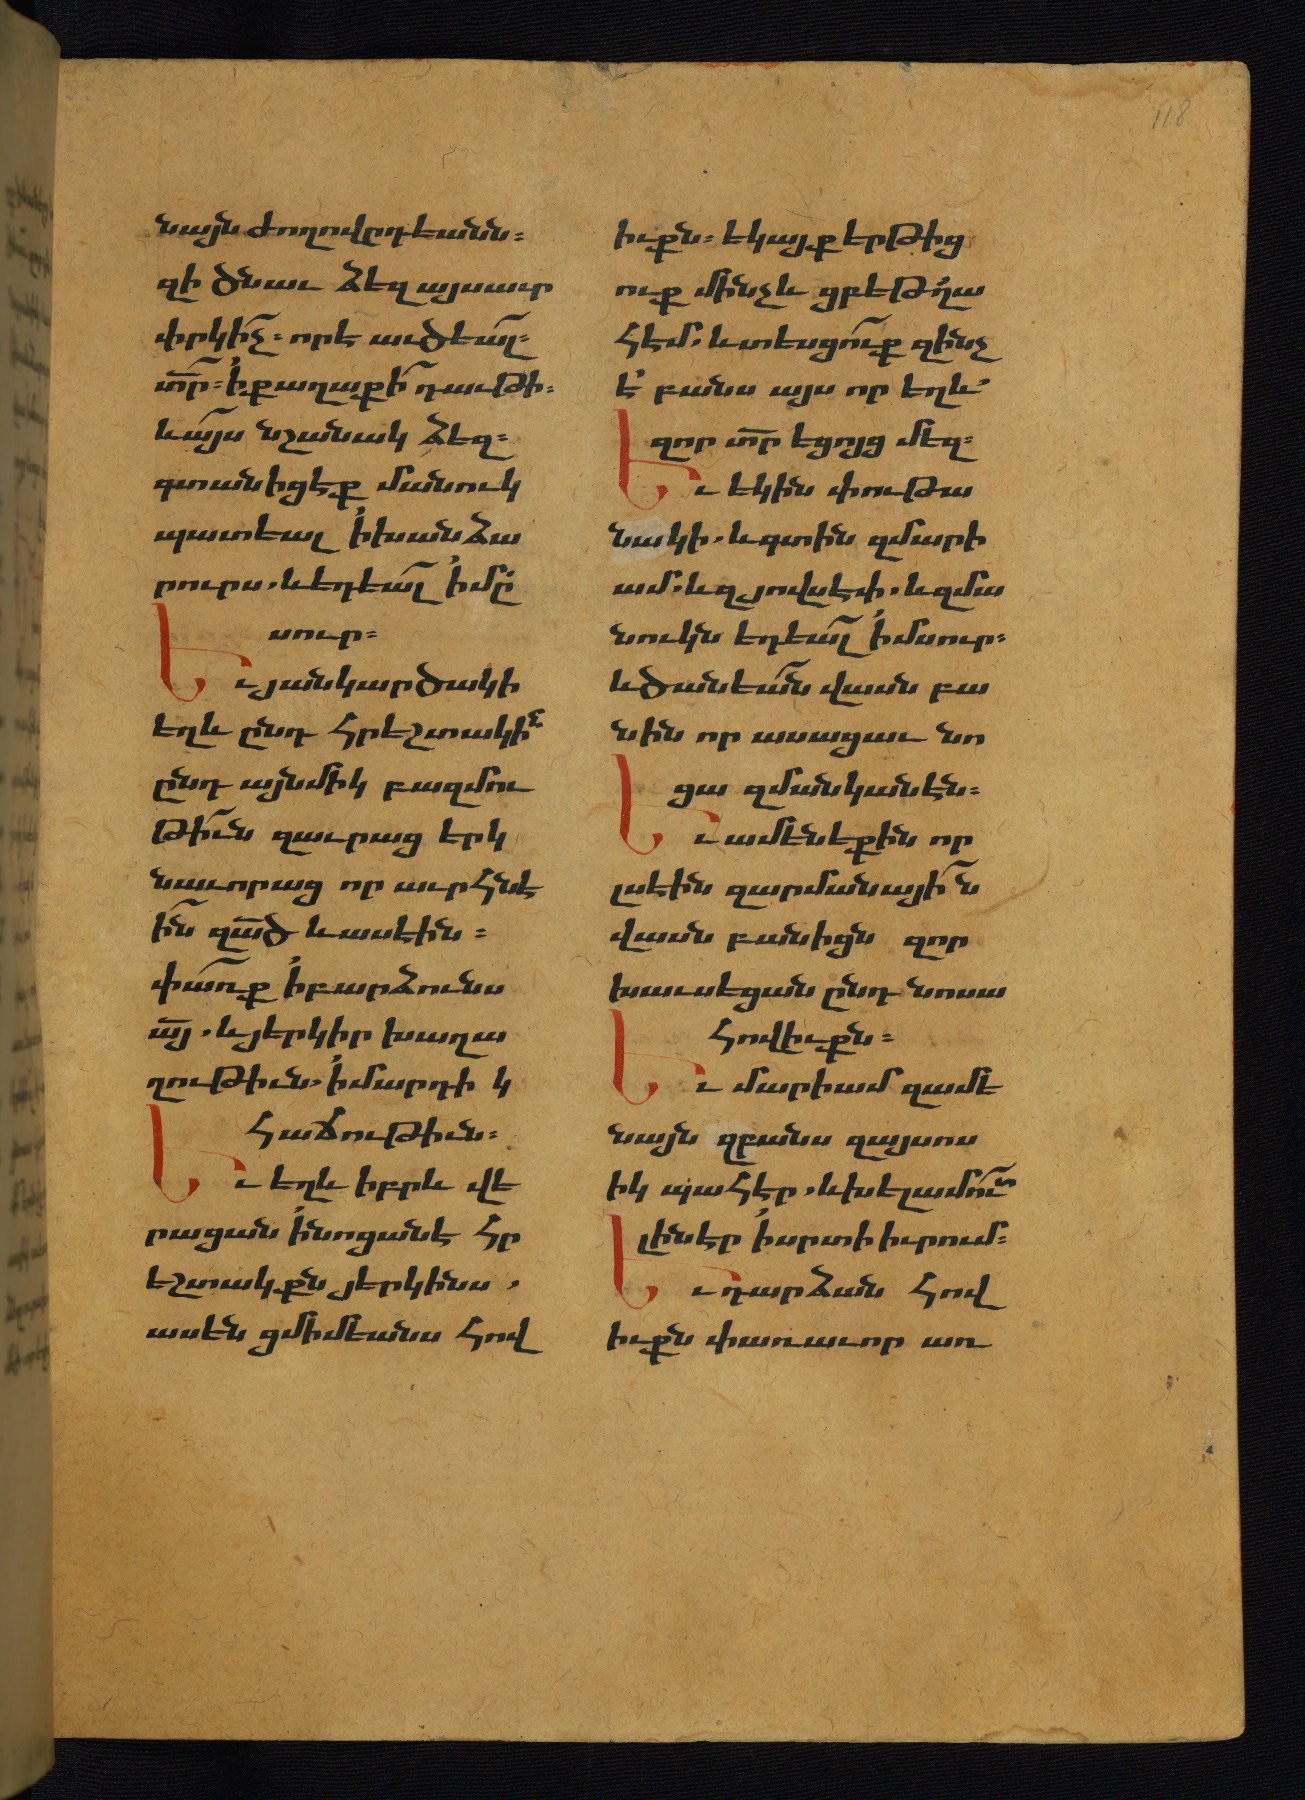 118
նայն ժողովըդեանն։
զի ծնաւ ձեզ այսաւր
փրկիչ։ որէ աւծեալ։
տր։ ի քաղաքի դաւթի։
և այս նշանակ ձեզ։
գտանիցէք մանուկ
պատեալ ի խանձա
րուրս, և եդեալ ի մը
սուր։
Եւ յանկարծակի
եղև ընդ հրեշտակին
ընդ այնմիկ բազմու
թիւն զաւրաց երկ
նաւորաց որ աւրհնէ
ին զած և ասէին։
փառք ի բարձունս
այ, և յերկիր խաղա
ղութիւն, ի մարդիկ
հաճութիւն։
Եւ եղև իբրև վե
րացան ի նոցանէ հր
եշտակքն յերկինս,
ասեն ցմիմեանս հով
իւքն։ եկայք երթից
ուք մինչև ցբեթղա
հէմ. և տեսցուք զինչ
է բանս այս որ եղև
զոր տր եցոյց մեզ։
Եւ եկին փութա
նակի, և գտին զմարի
ամ. և զյովսէփ, և զմա
նուկն եդեալ ի մսուր։
և ծանեան վասն բա
նին որ ասացաւ նո
ցա զմանկանէն։
Եւ ամենեքին որ
լսէին զարմանային
վասն բանիցն զոր
խաւսեցան ընդ նոսա
հովիւքն։
Եւ մարիամ զամե
նայն զբանս զայսոս
իկ պահէր, և խելամուտ
լինէր ի սրտի իւրում։
Եւ դարձան հով
իւքն փառաւոր առ